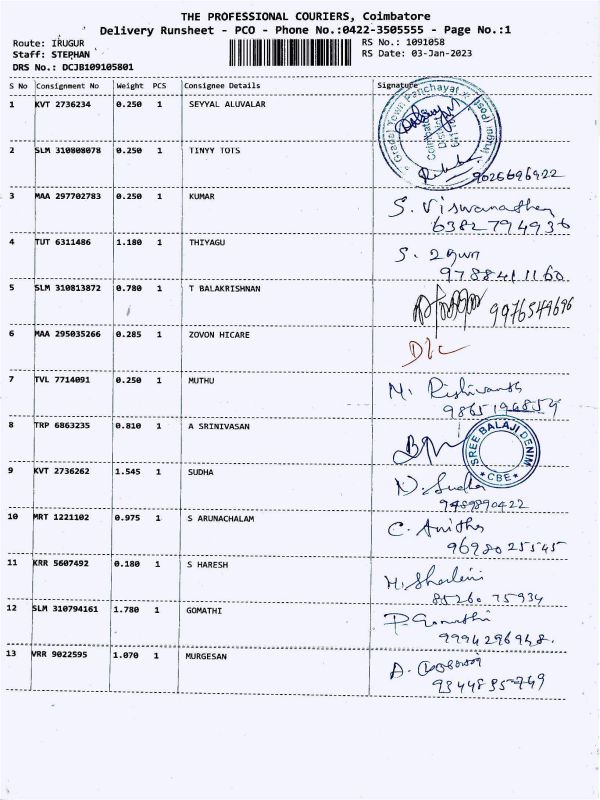 THE PROFESSIONAL COURIERS, Coimbatore
Delivery Runsheet - PCO - Phone No.:0422-3505555 - Page No.:1
Route: IRUGUR RS No.: 1091058
Staff: STEPHAN RS Date: 03-Jan-2023
DRS No.: DCJB109105801
S No Consignment No Weight PCS Consignee Details Signature
1 KVT 2736234 0.250 1 SEYYAL ALUVALAR
Town Panchayat
Coimbatore
2 SLM 310808078 0.250 1 TINYY TOTS
9026696922
3 MAA 297702783 0.250 1 KUMAR S. Viswanathan
6382794936
4 TUT 6311486 1.180 1 THIYAGU S.
9788411160
5 SLM 310813872 0.780 1 T BALAKRISHNAN 9976549696
6 MAA 295035266 0.285 1 ZOVON HICARE D/C
7 TVL 7714091 0.250 1 MUTHU M. Rishivanth
8 TRP 6863235 0.810 1 A SRINIVASAN
SREE BALAJI DENIM
CBE
9 KVT 2736262 1.545 1 SUDHA N. Sudha
9489890422
10 MRT 1221102 0.975 1 S ARUNACHALAM C. Anitha
9698025545
11 KRR 5607492 0.180 1 S HARESH H. Sharlini
85260 75934
12 SLM 310794161 1.780 1 GOMATHI P. Gomathi
9994296948.
13 VRR 9022595 1.070 1 MURGESAN A.
9344835749